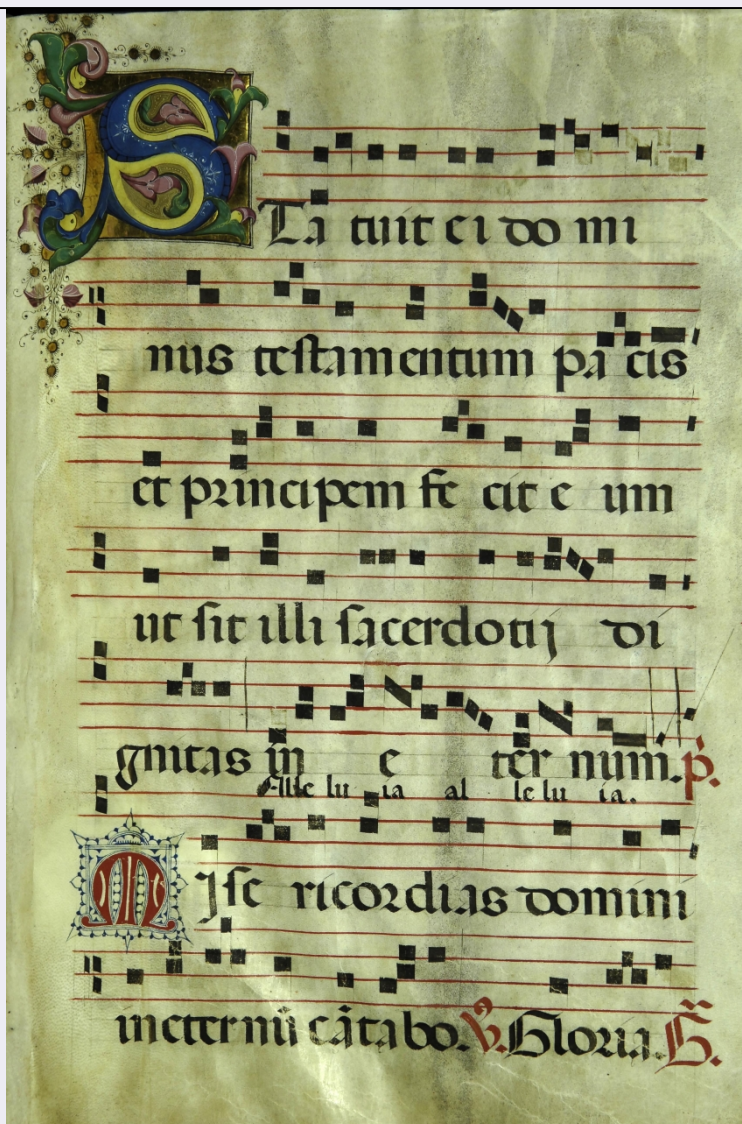 STa tuit ei do mi
nus testamentum pa cis
et principem fe cit e um
ut sit illi sacerdotij di
gnitas in e ter num. p̄.
Alle lu ia al le lu ia.
MIse ricordias domini
in eternū cātabo. V̄. Gloria. G̈.